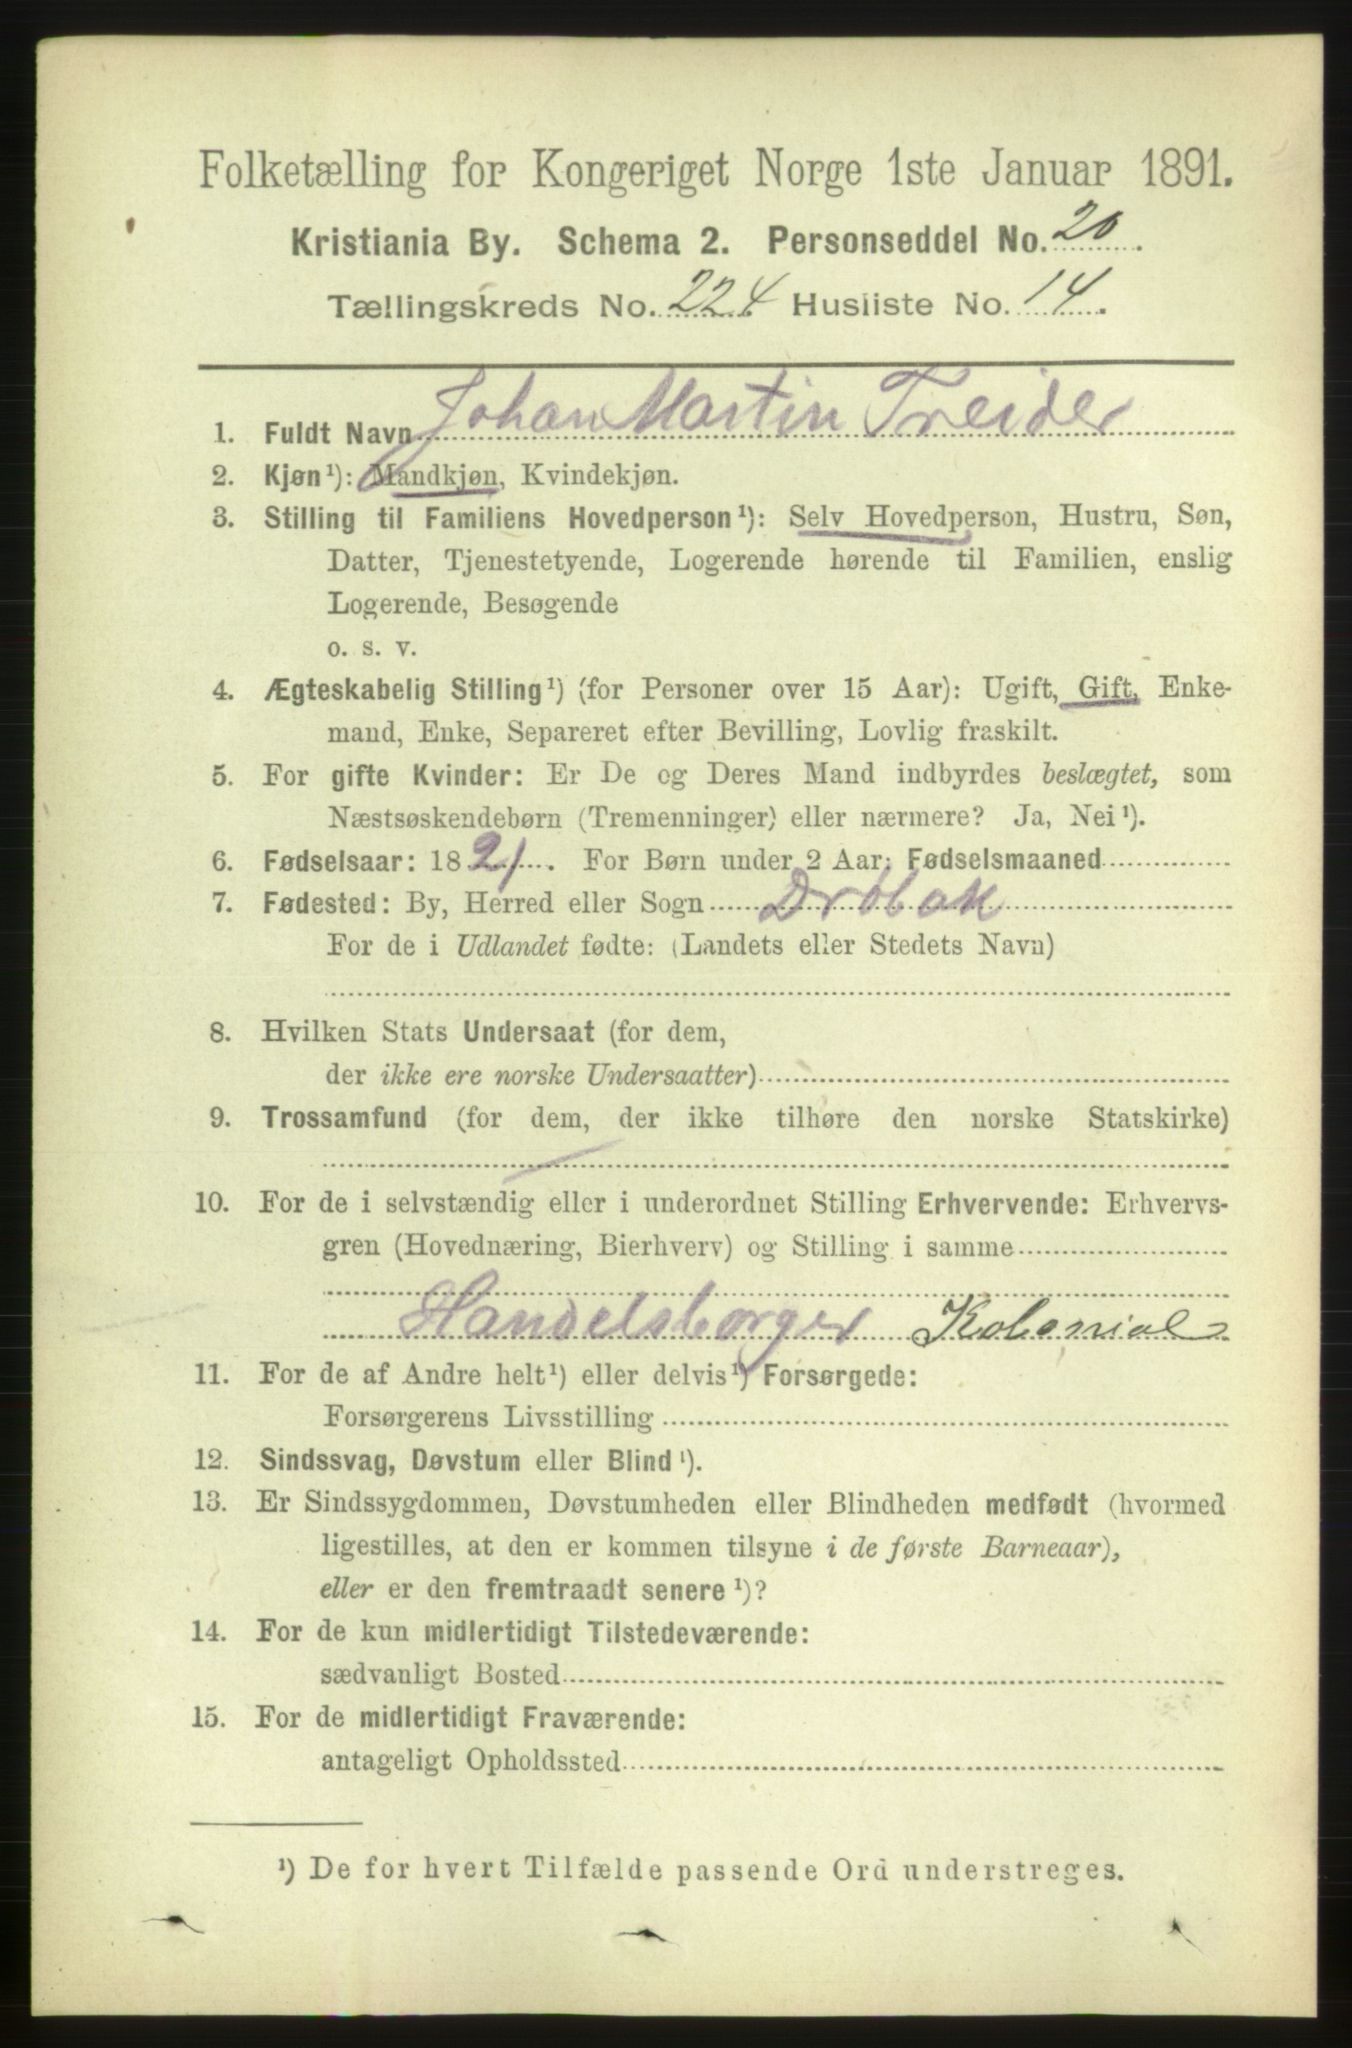 Folketælling for Kongeriget Norge 1ste Januar 1891.
Kristiania By. Schema 2. Personseddel No. 20.
Tællingskreds No. 224. Husliste No. 14.
1. Fuldt Navn Johan Martin Treider
2. Kjøn¹): Mandkjøn, Kvindekjøn.
3. Stilling til Familiens Hovedperson¹): Selv Hovedperson, Hustru, Søn,
Datter, Tjenestetyende, Logerende hørende til Familien, enslig
Logerende, Besøgende
o. s. v.
4. Ægteskabelig Stilling¹) (for Personer over 15 Aar): Ugift, Gift, Enke-
mand, Enke, Separeret efter Bevilling, Lovlig fraskilt.
5. For gifte Kvinder: Er De og Deres Mand indbyrdes beslægtet, som
Næstsøskendebørn (Tremenninger) eller nærmere? Ja, Nei¹).
6. Fødselsaar: 1821. For Børn under 2 Aar: Fødselsmaaned
7. Fødested: By, Herred eller Sogn Drøbak
For de i Udlandet fødte: (Landets eller Stedets Navn)
8. Hvilken Stats Undersaat (for dem,
der ikke ere norske Undersaatter)
9. Trossamfund (for dem, der ikke tilhøre den norske Statskirke)
10. For de i selvstændig eller i underordnet Stilling Erhvervende: Erhvervs-
gren (Hovednæring, Bierhverv) og Stilling i samme
Handelsborger Kolonial
11. For de af Andre helt¹) eller delvis¹) Forsørgede:
Forsørgerens Livsstilling
12. Sindssvag, Døvstum eller Blind¹).
13. Er Sindssygdommen, Døvstumheden eller Blindheden medfødt (hvormed
ligestilles, at den er kommen tilsyne i de første Barneaar),
eller er den fremtraadt senere¹)?
14. For de kun midlertidigt Tilstedeværende:
sædvanligt Bosted
15. For de midlertidigt Fraværende:
antageligt Opholdssted
¹) De for hvert Tilfælde passende Ord understreges.